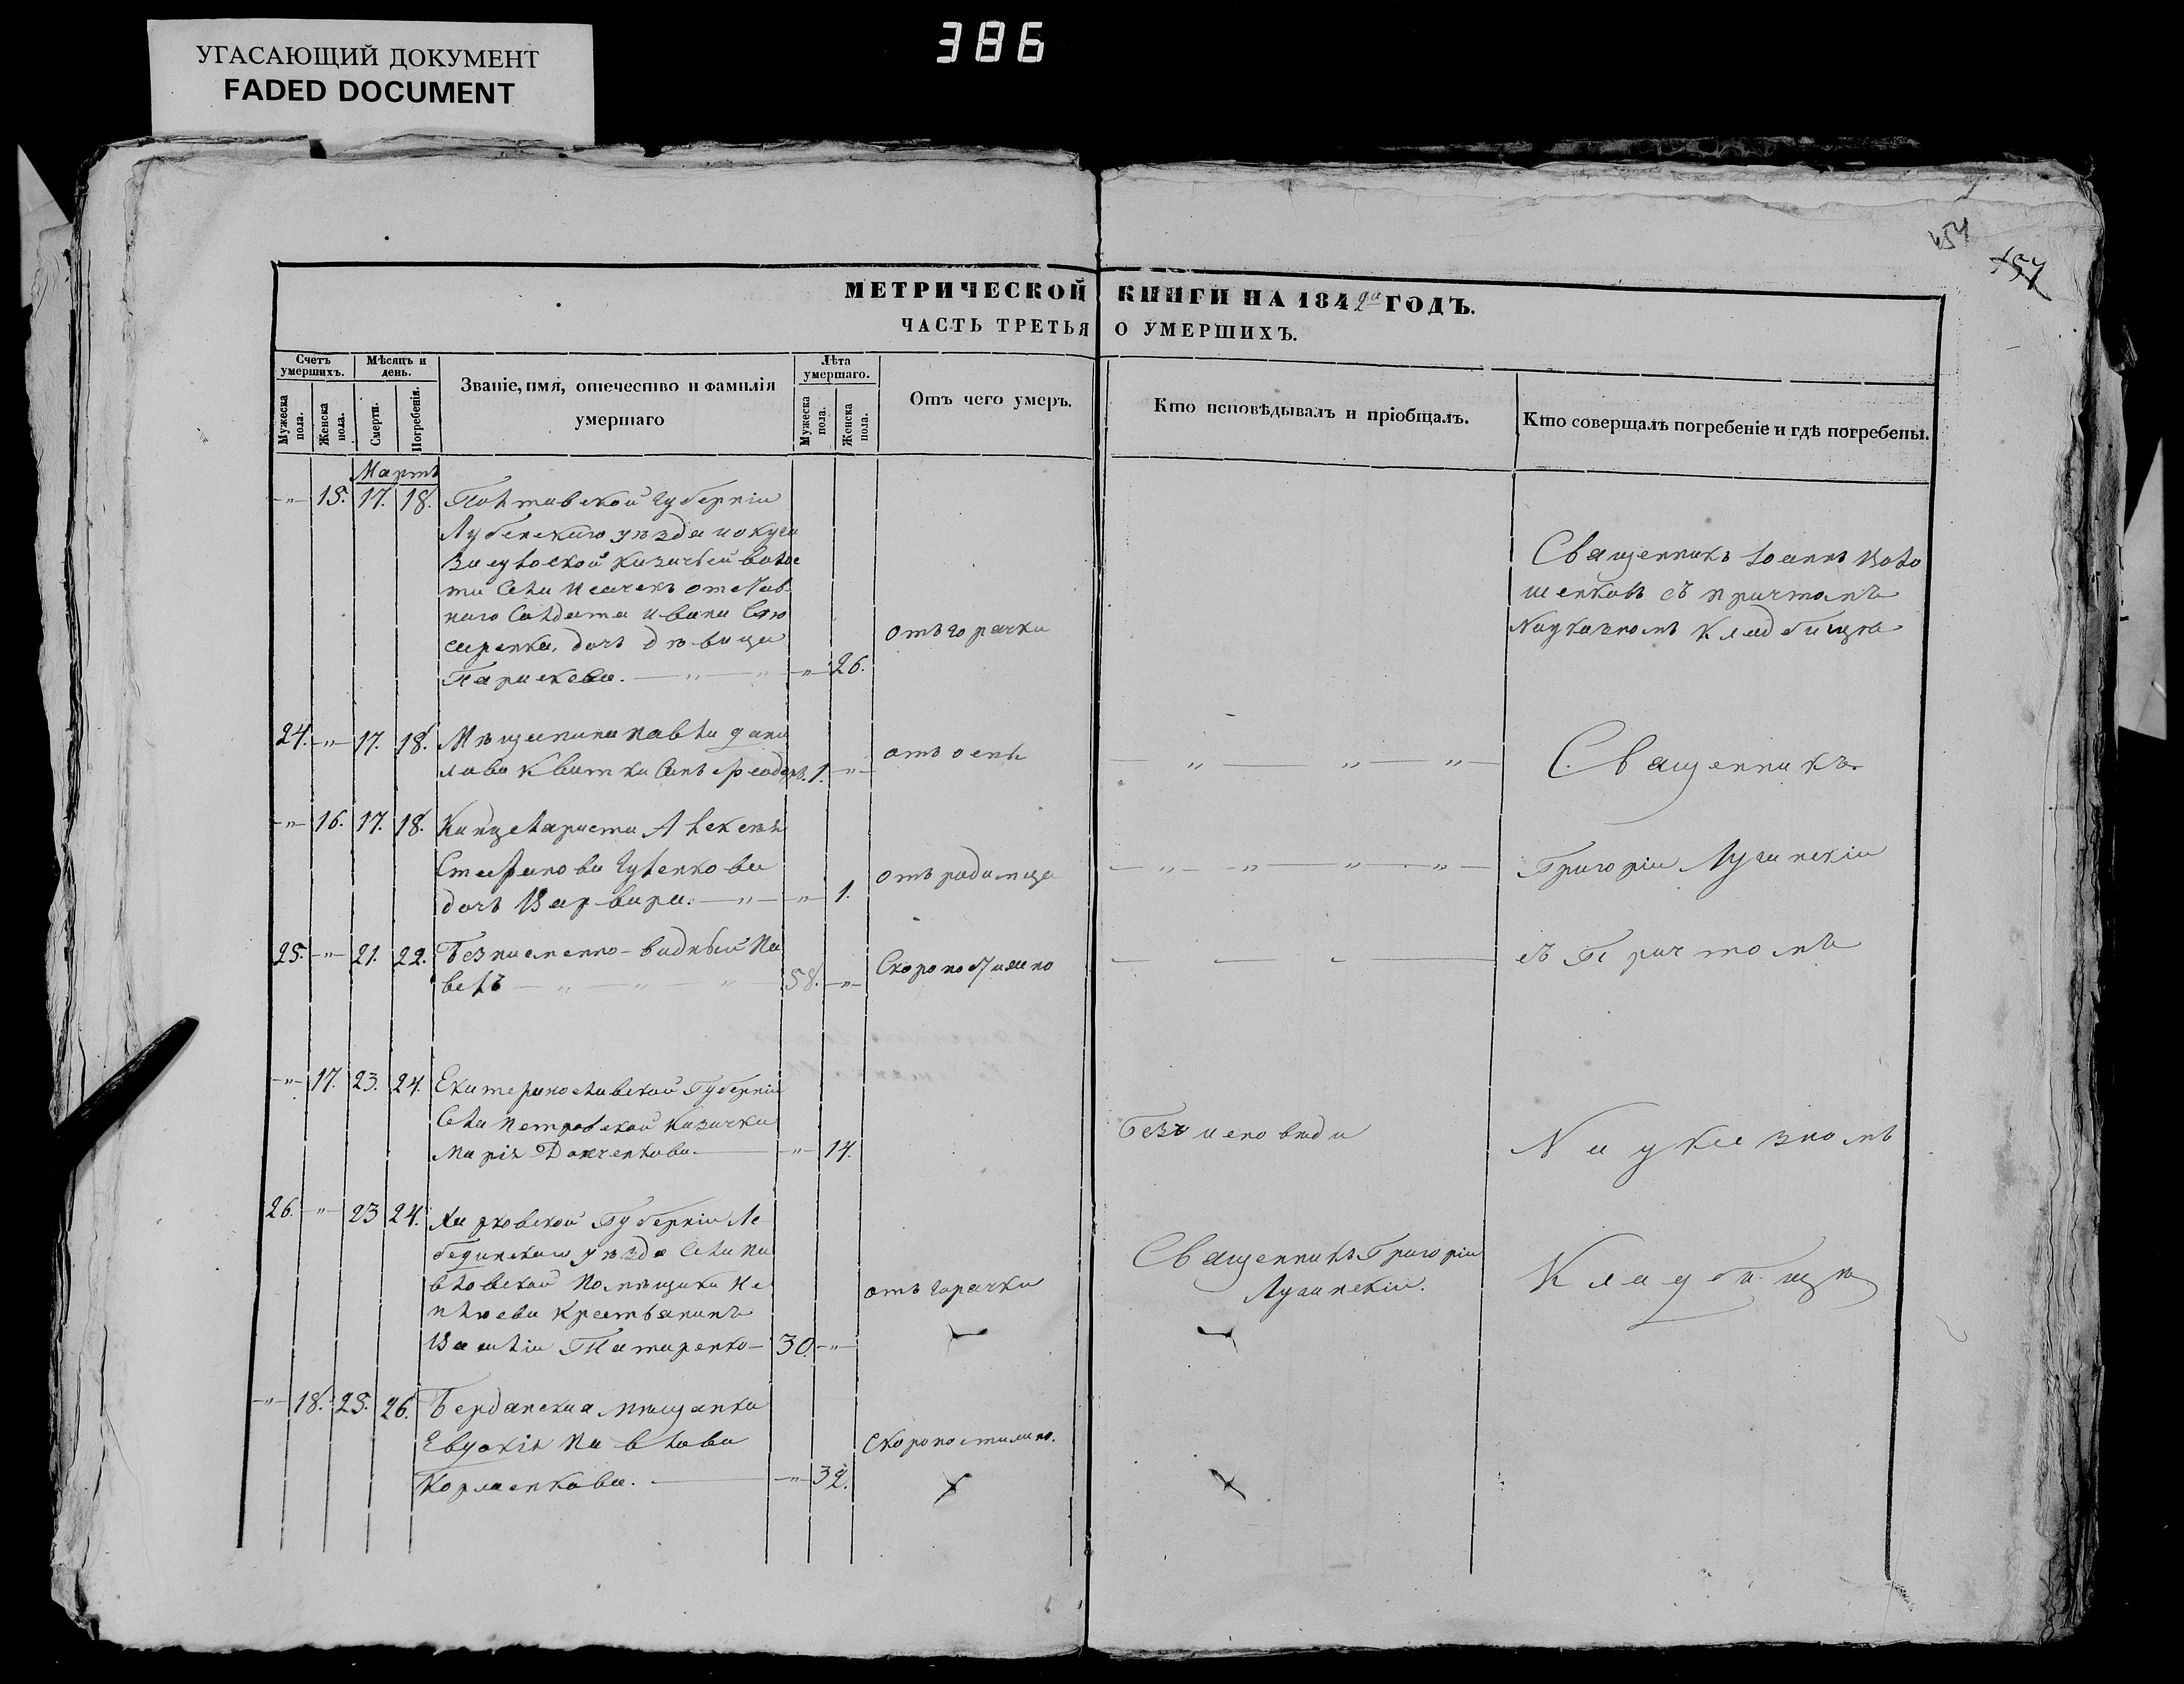 УГАСАЮЩИЙ ДОКУМЕНТ
FADED DOCUMENT
386
154
157
МЕТРИЧЕСКОЙ КНИГИ НА 1842 го ГОДЪ.
ЧАСТЬ ТРЕТЬЯ О УМЕРШИХЪ.
Счетъ умершихъ.
Мужеска пола.
Женска пола.
Мѣсяцъ и день.
Смерти.
Погребенія.
Званіе, имя, отечество и фамилія
умершаго
Лѣта умершаго.
Мужеска пола.
Женска пола.
Отъ чего умеръ.
Кто исповѣдывалъ и пріобщалъ.
Кто совершалъ погребеніе и гдѣ погребены.
Мартъ
-„- 15. 17. 18. Полтавской Губерніи
Лубенскаго уѣзда
казачьей волос
ти Села отстав
наго Солдата Ивана
дочь дѣвица
Параскева. -„- 26.
отъ горячки
Священникъ Іоаннъ Воло
шенковъ съ причтомъ
На указномъ Кладбищѣ
24. -„- 17. 18. Мѣщанина Павла Дани
лова Квитки Сынъ 1. -„-
отъ оспы
-„- -„- -„-
Священникъ
-„- 16. 17. 18. Канцеляриста Алексѣя
Стефанова
дочь Варвара. -„- 1.
отъ родимца
-„- -„- -„- -„-
Григорій Лузинскій
25. -„- 21. 22. Безписьменно-видный Па
велъ 58. -„-
Скоропостижно
съ Причтомъ
-„- 17. 23. 24. Екатеринославской Губерніи
Села Петровской Казачка
Марія -„- 14.
Безъ исповѣди
На указномъ
26. -„- 23 24. Харковской Губерніи Ле
бединскаго уѣзда Села Па
вловской Помѣщика Не
плюева Крестьянинъ
Василій Татаренко- 30. -„-
отъ горячки
Священникъ Григорій
Лузинскій.
Кладбищѣ
-„- 18. 25. 26. Бердянская мѣщанка
Евдокія Павлова
Корменкова. -„- 32.
Скоропостижно.